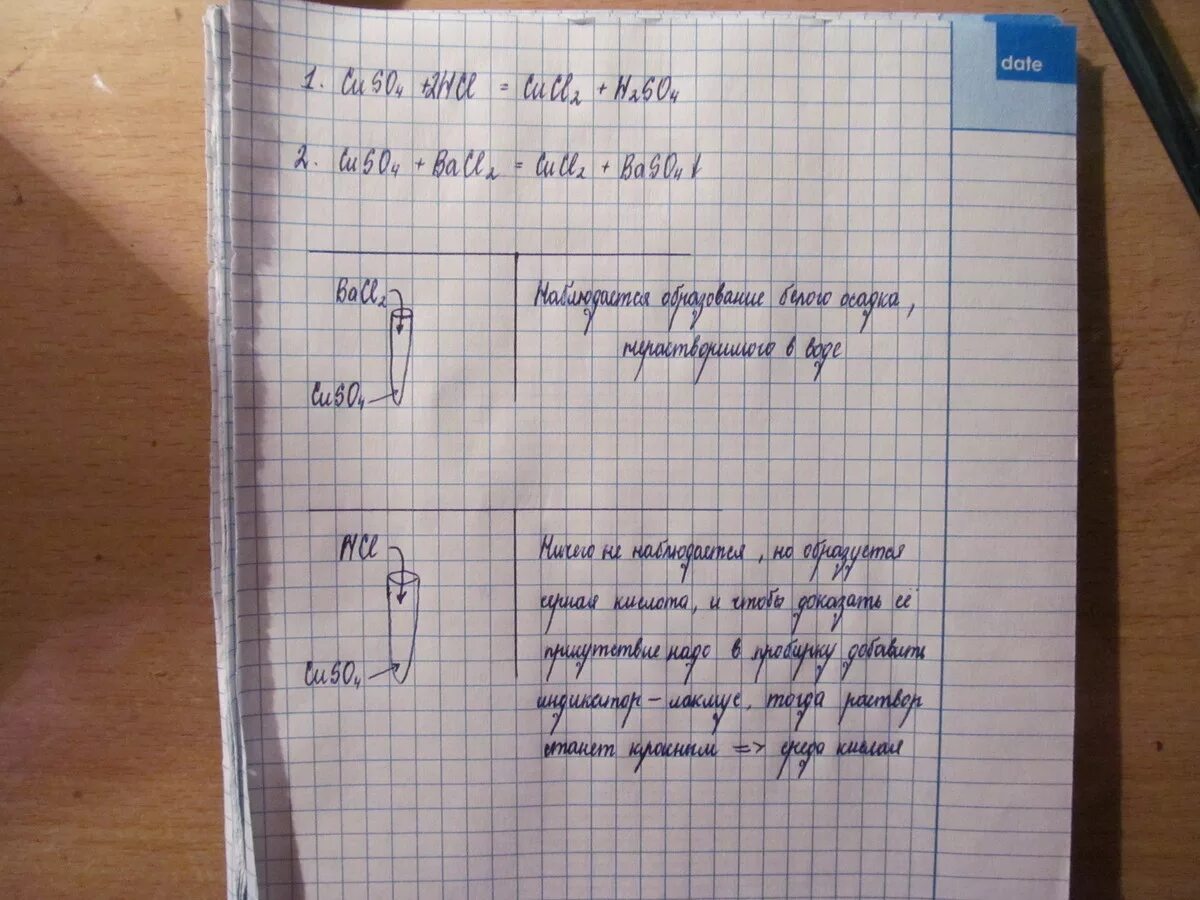 date
1. CuSO₄ + 2HCl = CuCl₂ + H₂SO₄
2. CuSO₄ + BaCl₂ = CuCl₂ + BaSO₄↓
BaCl₂
CuSO₄
Наблюдается образование белого осадка,
нерастворимого в воде
HCl
CuSO₄
Ничего не наблюдается, но образуется
серная кислота, и чтобы доказать её
присутствие надо в пробирку добавить
индикатор – лакмус, тогда раствор
станет красным => среда кислая